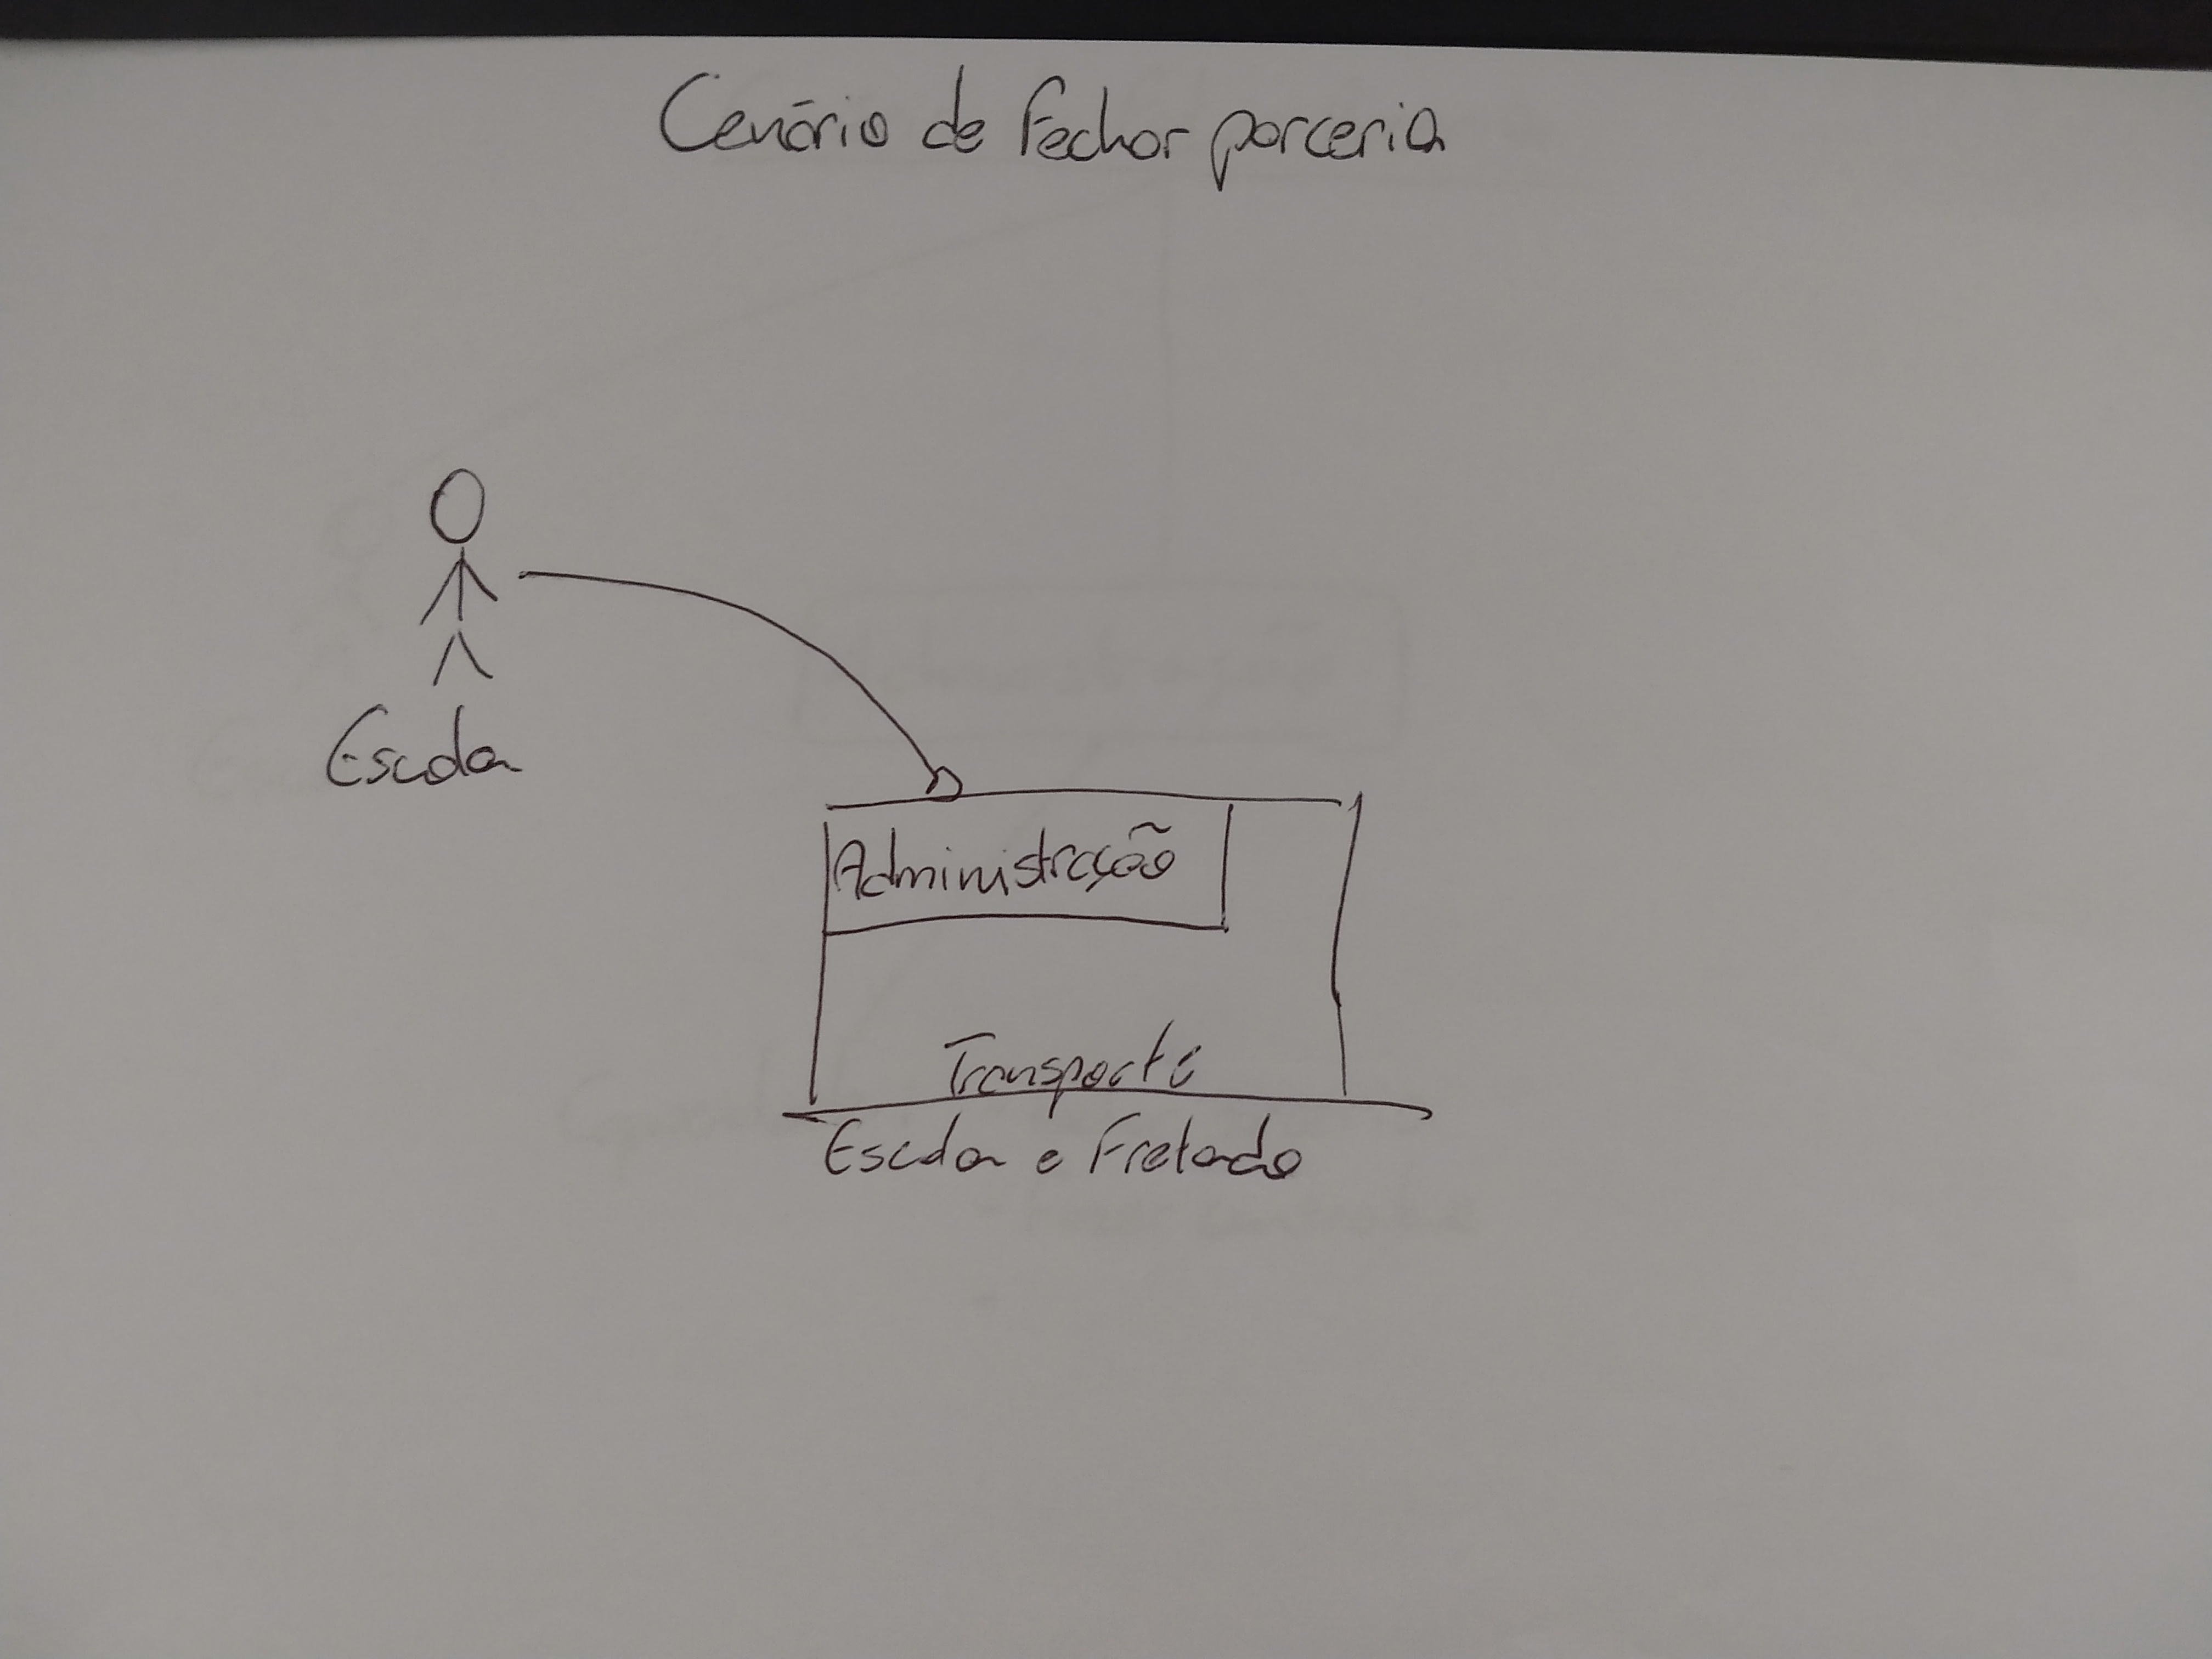 Cenário de Fechar parceria
Escola
Administração
Transporte
Escolar e Fretado